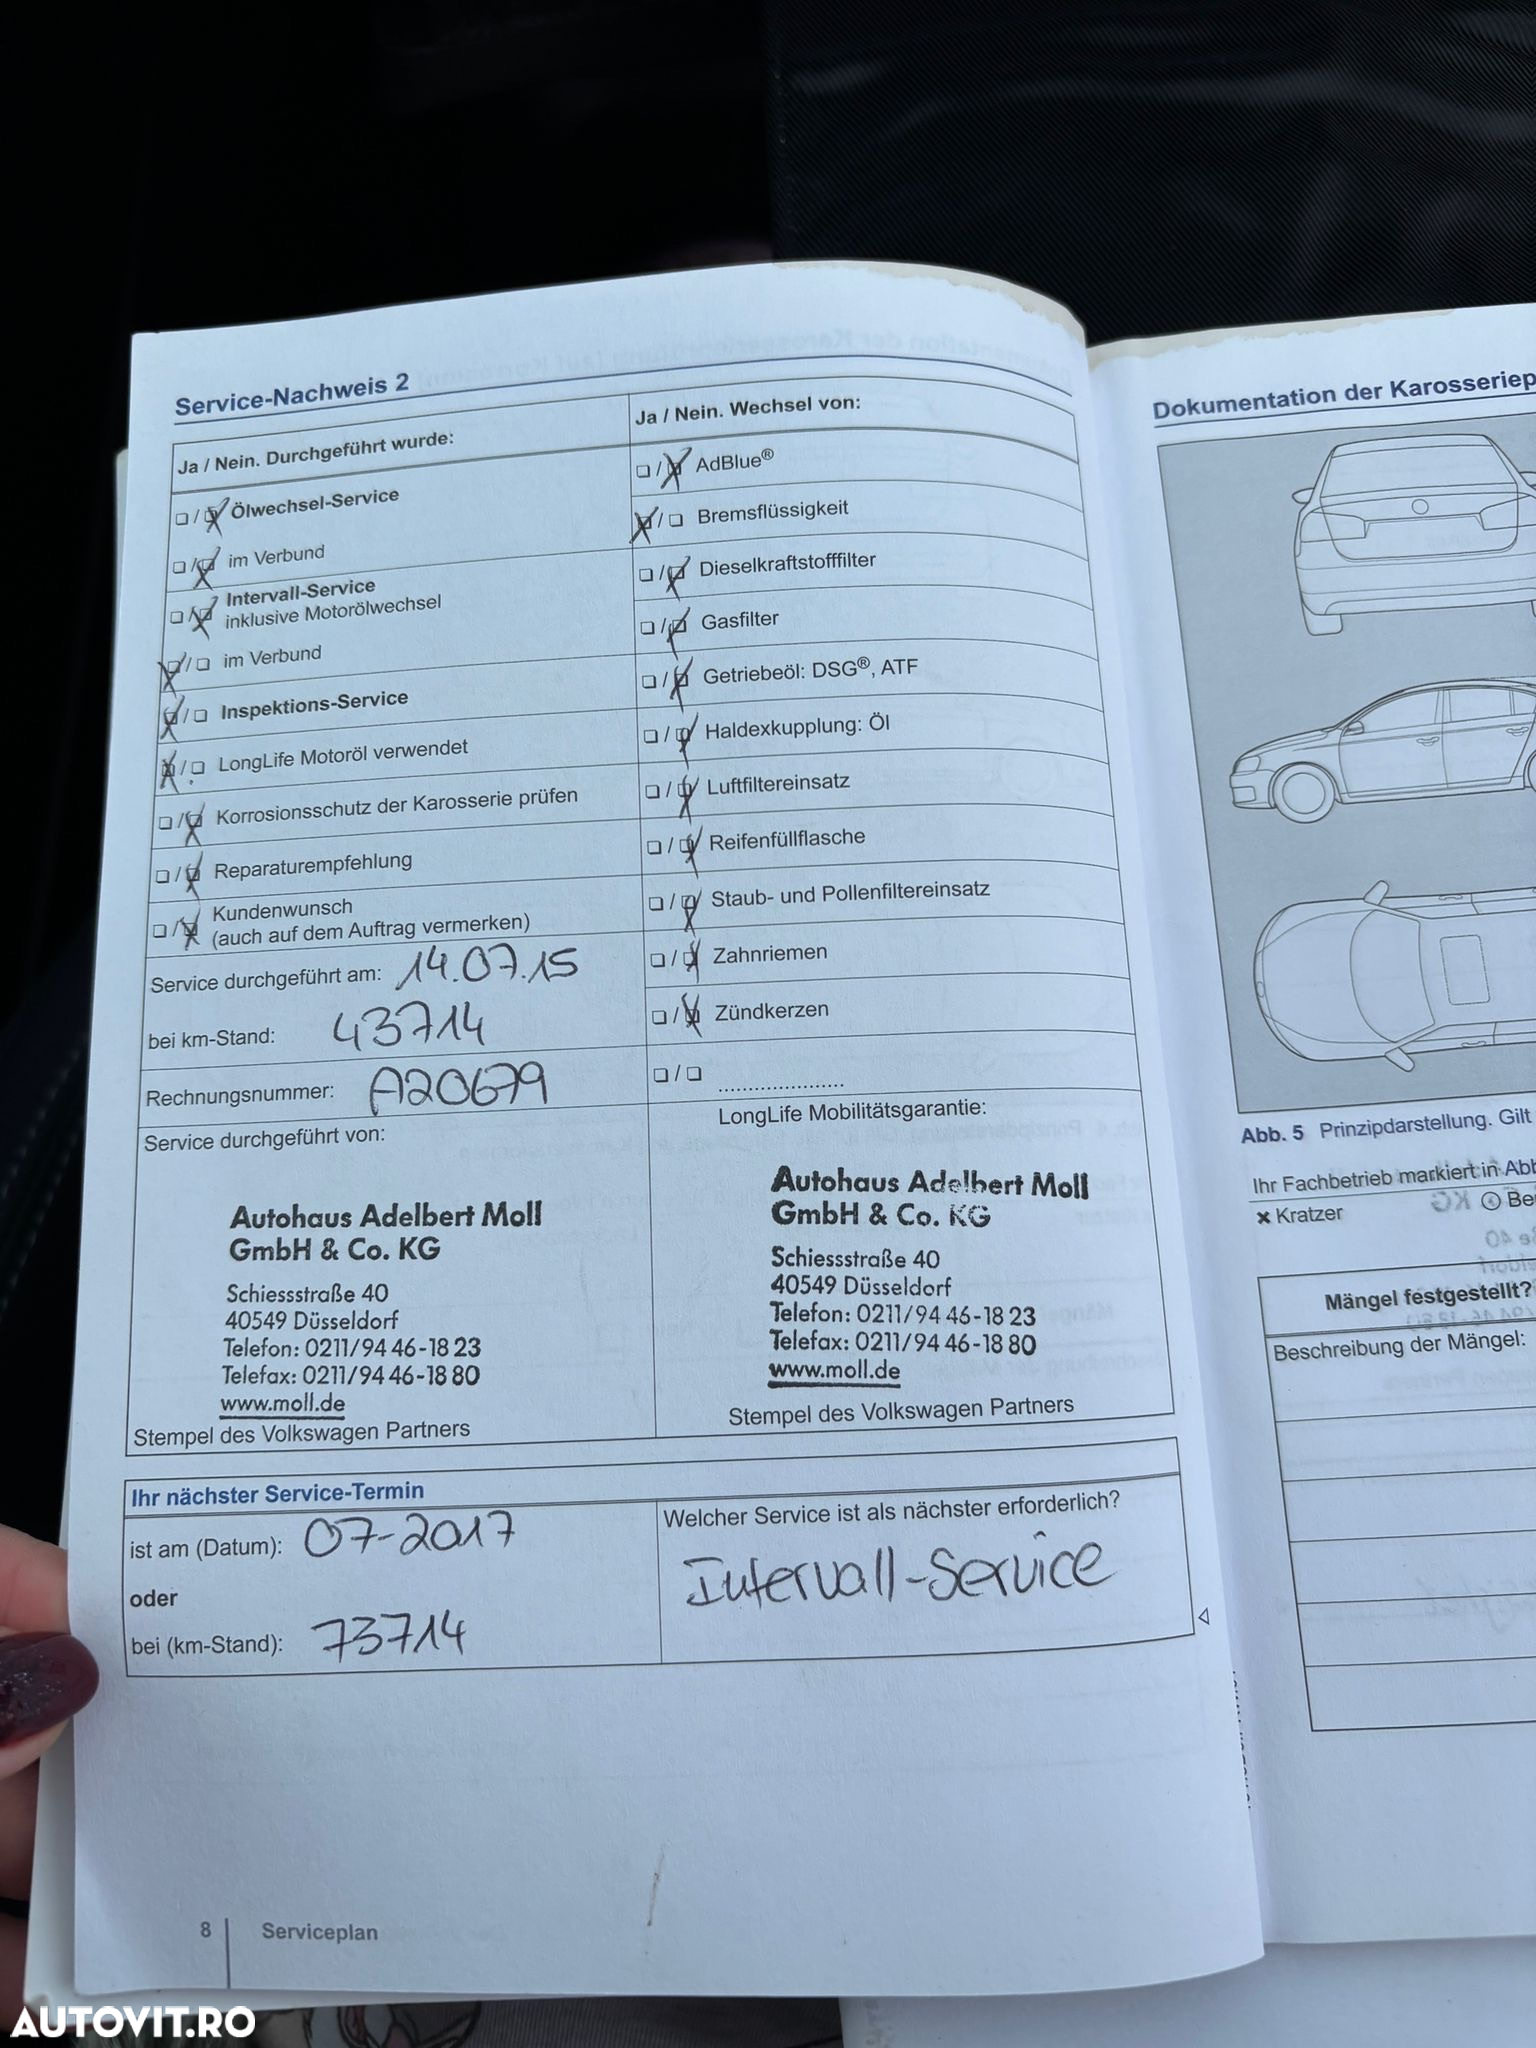 Service-Nachweis 2
Ja / Nein. Durchgeführt wurde:
Ölwechsel-Service
im Verbund
Intervall-Service
inklusive Motorölwechsel
im Verbund
Inspektions-Service
LongLife Motoröl verwendet
Korrosionsschutz der Karosserie prüfen
Reparaturempfehlung
Kundenwunsch
(auch auf dem Auftrag vermerken)
Service durchgeführt am: 14.07.15
bei km-Stand: 43714
Rechnungsnummer: A20679
Service durchgeführt von:
Autohaus Adelbert Moll
GmbH & Co. KG
Schiessstraße 40
40549 Düsseldorf
Telefon: 0211/94 46-18 23
Telefax: 0211/94 46-18 80
www.moll.de
Stempel des Volkswagen Partners
Ja / Nein. Wechsel von:
AdBlue®
Bremsflüssigkeit
Dieselkraftstofffilter
Gasfilter
Getriebeöl: DSG®, ATF
Haldexkupplung: Öl
Luftfiltereinsatz
Reifenfüllflasche
Staub- und Pollenfiltereinsatz
Zahnriemen
Zündkerzen
LongLife Mobilitätsgarantie:
Autohaus Adelbert Moll
GmbH & Co. KG
Schiessstraße 40
40549 Düsseldorf
Telefon: 0211/94 46-18 23
Telefax: 0211/94 46-18 80
www.moll.de
Stempel des Volkswagen Partners
Ihr nächster Service-Termin
ist am (Datum): 07-2017
oder
bei (km-Stand): 73714
Welcher Service ist als nächster erforderlich?
Intervall-Service
8 Serviceplan
Dokumentation der Karosseriep
Abb. 5 Prinzipdarstellung. Gilt
Ihr Fachbetrieb markiert in Abb
× Kratzer
Mängel festgestellt?
Beschreibung der Mängel:
AUTOVIT.RO